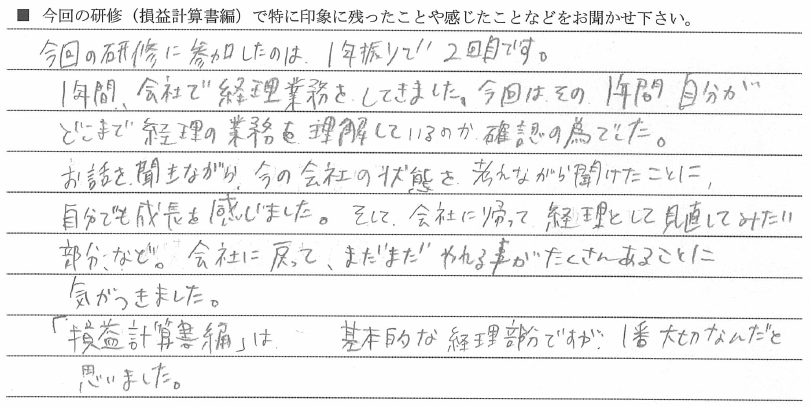 ■ 今回の研修（損益計算書編）で特に印象に残ったことや感じたことなどをお聞かせ下さい。
今回の研修に参加したのは、1年振りで2回目です。
1年間、会社で経理業務をしてきました。今回はその1年間自分が
どこまで経理の業務を理解しているのか確認の為でした。
お話を聞きながら、今の会社の状態を考えながら聞けたことに、
自分でも成長を感じました。そして、会社に帰って経理として見直してみたい
部分、など。会社に戻って、まだまだやれる事がたくさんあることに
気がつきました。
「損益計算書編」は 基本的な経理部分ですが、1番大切なんだと
思いました。